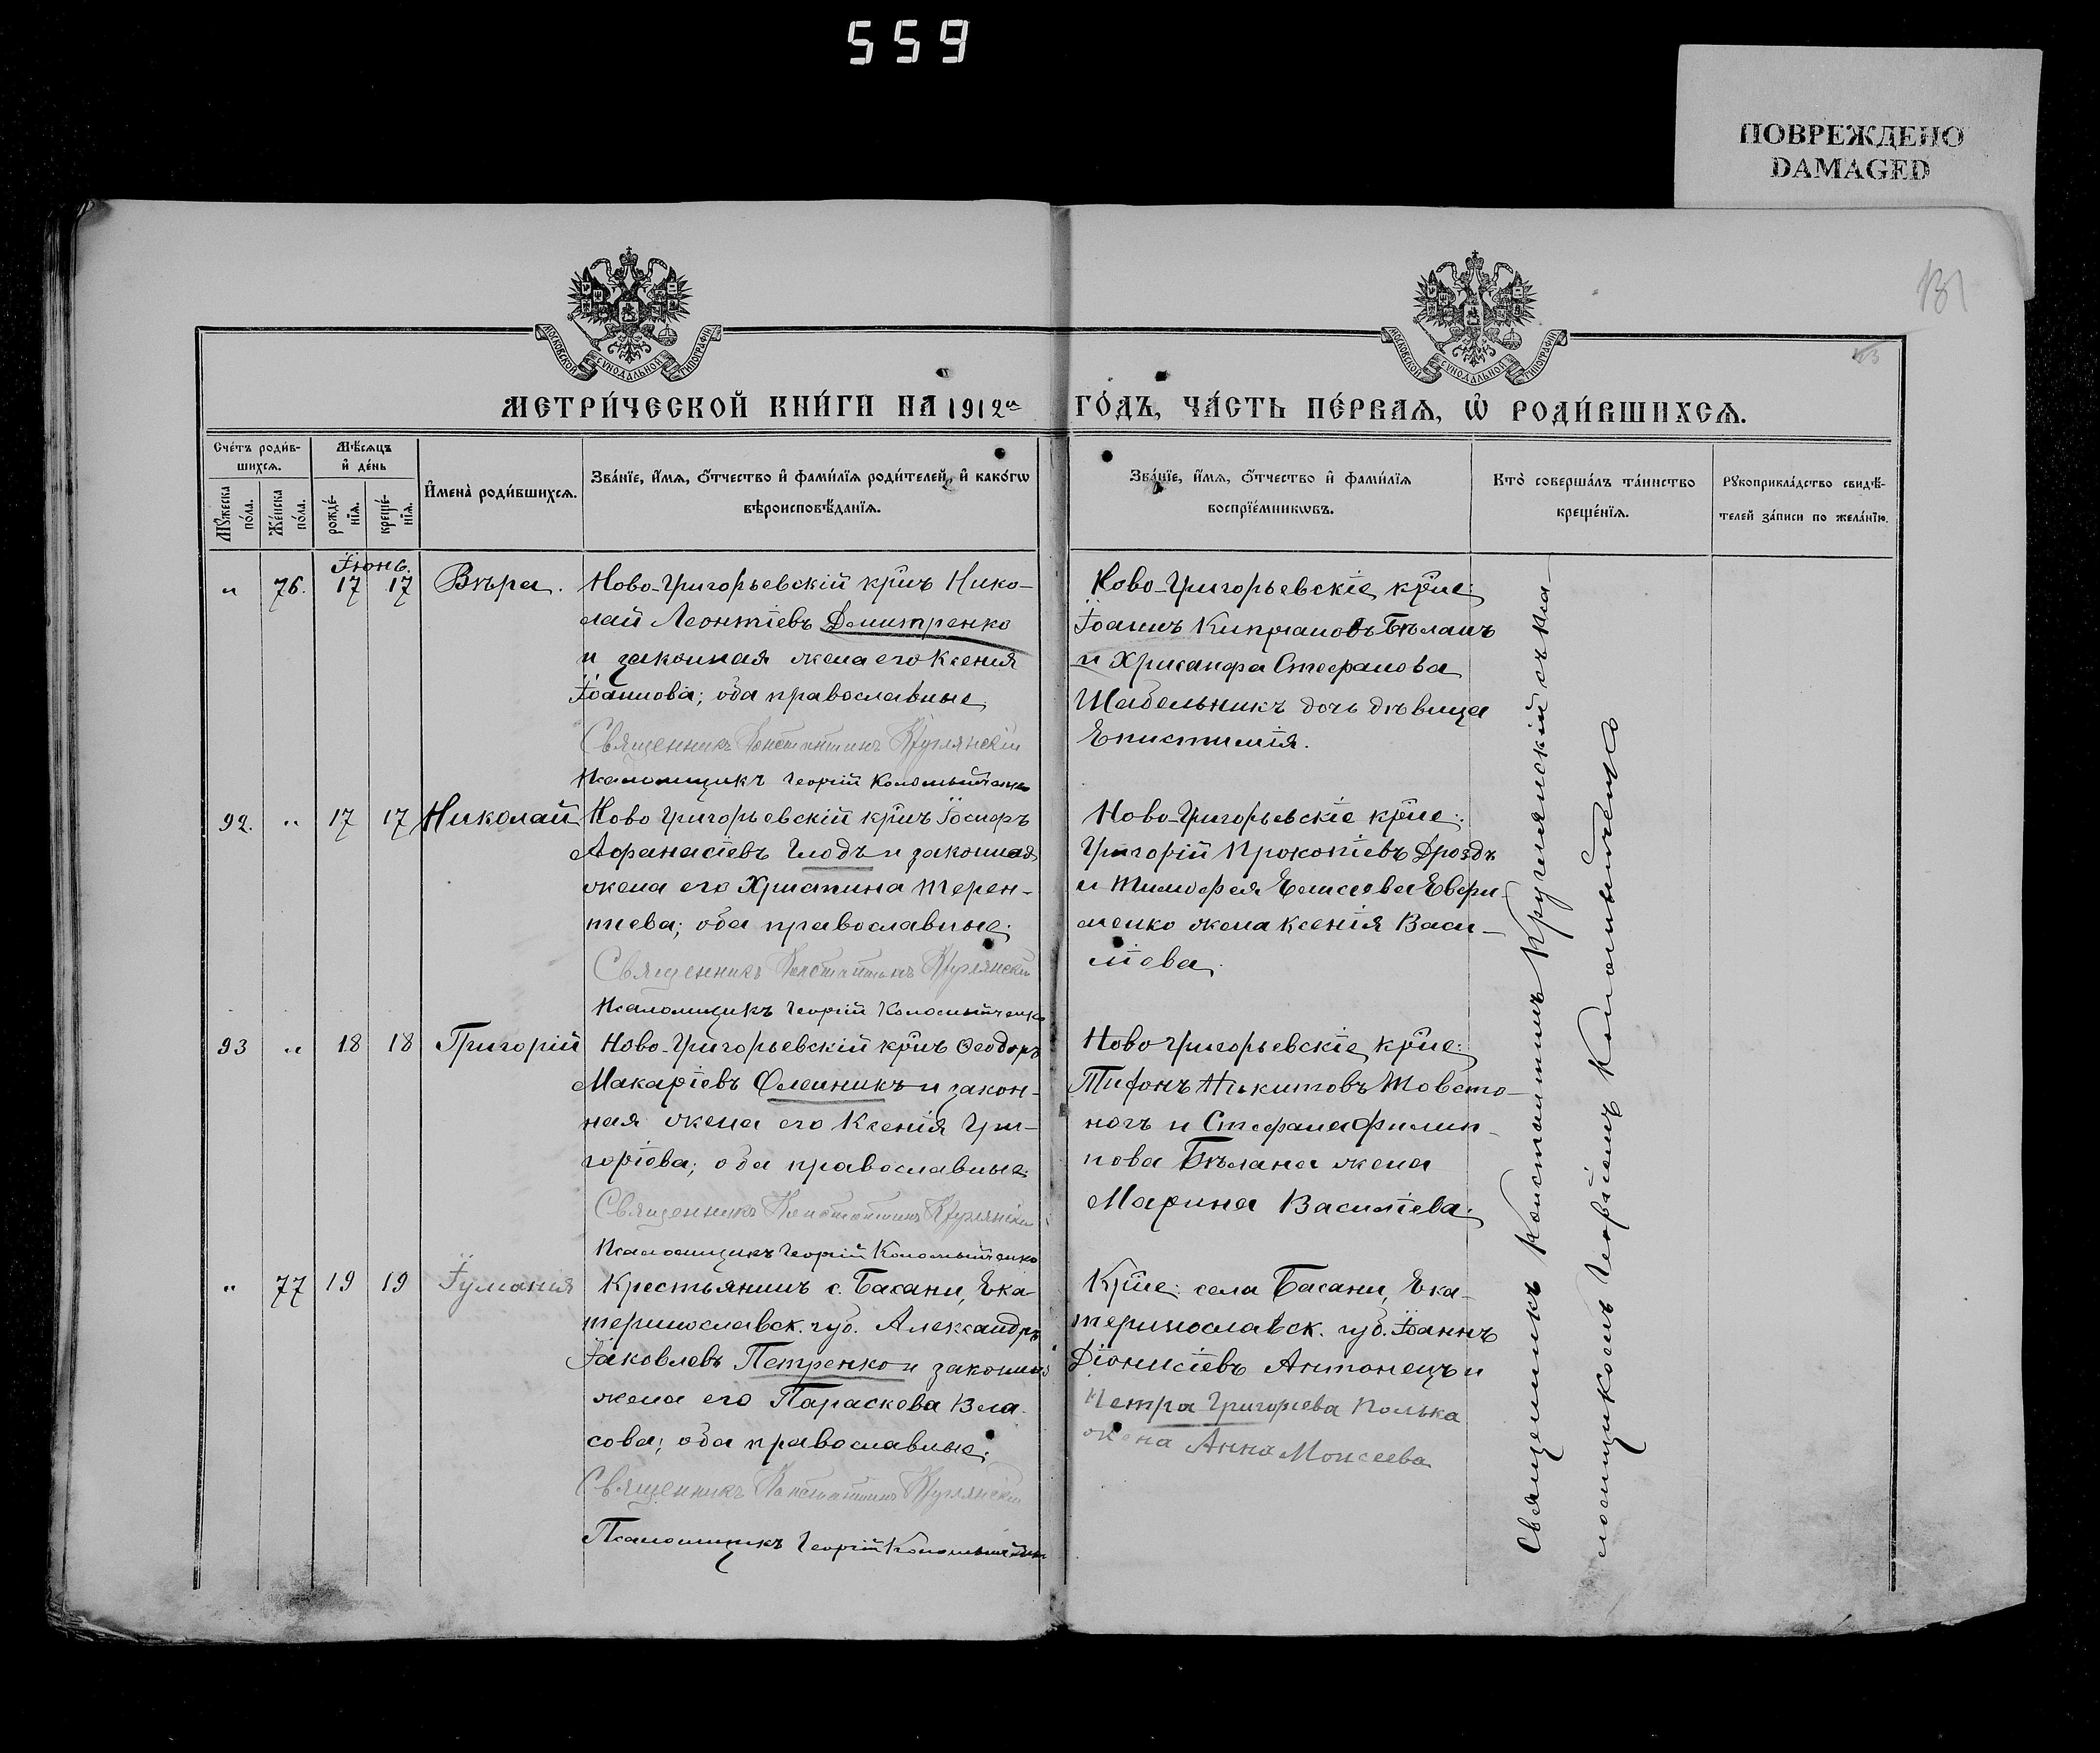 559
ПОВРЕЖДЕНО
DAMAGED
131
МОСКОВСКОЙ СѴНОДАЛЬНОЙ ТИПОГРАФІИ
МОСКОВСКОЙ СѴНОДАЛЬНОЙ ТИПОГРАФІИ
МЕТРИ́ЧЕСКОЙ КНИ́ГИ НА 1912й ГО́ДЪ, ЧА́СТЬ ПЕ́РВАѦ, Ѡ҆ РОДИ́ВШИХСѦ.
Сче́тъ роди́в-
шихсѧ.
Мꙋ́жеска по́ла.
Же́нска по́ла.
Мѣ́сѧцъ
и҆ де́нь
рожде́-
нїѧ.
креще́-
нїѧ.
И҆мена̀ роди́вшихсѧ.
Зва́нїе, и҆́мѧ, ѻ҆́тчество и҆ фами́лїѧ роди́телей, и҆ како́гѡ
вѣроисповѣ́данїѧ.
Зва́нїе, и҆́мѧ, ѻ҆́тчество и҆ фами́лїѧ
воспрїе́мникѡвъ.
Кто̀ соверша́лъ та́инство
креще́нїѧ.
Рꙋкоприкла́дство свидѣ́-
телей за́писи по жела́нїю.
Іюнь.
" 76. 17 17 Вѣра. Ново-Григорьевскій кр̃нъ Нико-
лай Леонтіевъ Дмитренко
и законная жена его Ксенія
Іоаннова; оба православные
Священникъ Константинъ Круглянскій
Псаломщикъ Георгій Коломыйченко
Ново-Григорьевскіе кр̃не:
Іоаннъ Кипріановъ Бѣланъ
и Хрисанфа Стефанова
Шабельникъ дочь дѣвица
Епистимія.
92. " 17 17 Николай Ново Григорьевскій кр̃нъ Іосифъ
Афанасіевъ Глодъ и законная
жена его Христина Терен-
тиева; оба православные;
Священникъ Константинъ Круглянскій
Псаломщикъ Георгій Коломыйченко
Ново-Григорьевскіе кр̃не:
Григорій Прокопіевъ Дроздъ
и Тимофея Елисеева Евфи-
менко жена Ксенія Васи-
ліева.
93 " 18 18 Григорій Ново-Григорьевскій кр̃нъ Ѳеодоръ
Макаріевъ Олейникъ и закон-
ная жена его Ксенія Гри-
горіева; оба православные.
Священникъ Константинъ Круглянскій
Псаломщикъ Георгій Коломыйченко
Ново Григорьевскіе кр̃не:
Тифонъ Никитовъ Товсто-
ногъ и Стефана Филип-
пова Бѣлана жена
Марина Василіева.
" 77 19 19 Іуліанія Крестьянинъ с. Басани, Ека-
теринославск. губ. Александръ
Іаковлевъ Петренко и законная
жена его Параскева Вла-
сова; оба православные;
Священникъ Константинъ Круглянскій
Псаломщикъ Георгій Коломыйченко
Кр̃не: села Басани, Ека-
теринославск. губ. Іоаннъ
Діонисіевъ Антонецъ и
Петра Григориева Полька
жена Анна Моисеева
Священникъ Константинъ Круглянскій съ пса-
ломщикомъ Георгіемъ Коломыйченко